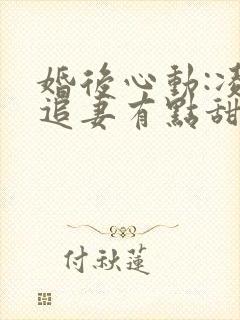 婚後心動:凌
追妻有點甜
付秋蓮